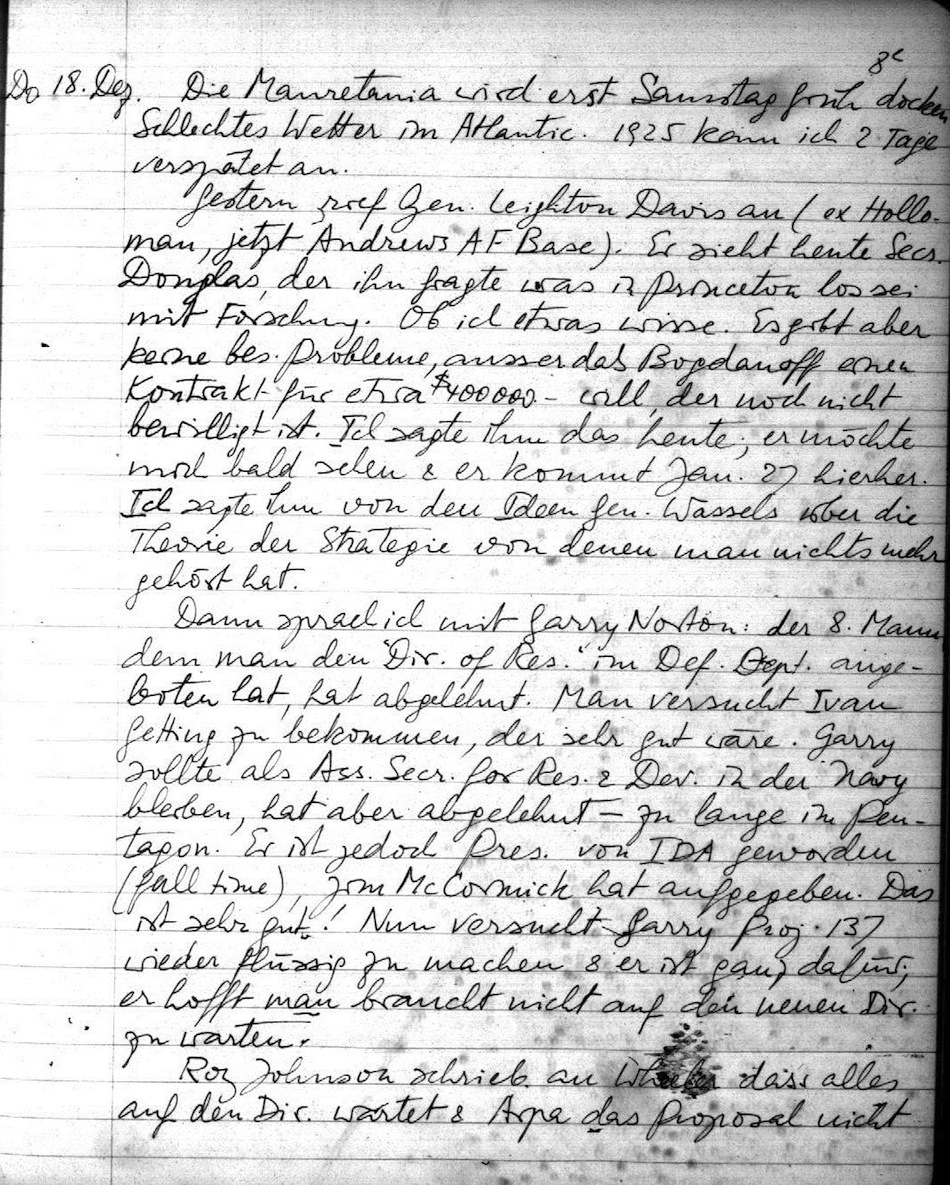 8c
Do 18. Dez. Die Mauretania wird erst Samstag früh docken
Schlechtes Wetter im Atlantic. 1925 kam ich 2 Tage
verspätet an.
Gestern rief Gen. Leighton Davis an (ex Hollo-
man, jetzt Andrews AF Base). Er sieht heute Secr.
Douglas, der ihn fragte was in Princeton los sei
mit Forschung. Ob ich etwas wisse. Es gibt aber
keine bes. Probleme, ausser das Bogdanoff einen
Kontrakt für etwa $400000.– will, der noch nicht
bewilligt ist. Ich sagte ihm das heute; er möchte
mich bald sehen & er kommt Jan. 27 hierher.
Ich sagte ihm von den Ideen Gen. Wassels über die
Theorie der Strategie von denen man nichts mehr
gehört hat.
Dann sprach ich mit Garry Norton: der 8. Mann
dem man den "Dir. of Res." im Def. Dept. ange-
boten hat, hat abgelehnt. Man versucht Ivan
Getting zu bekommen, der sehr gut wäre. Garry
sollte als Ass. Secr. for Res. & Dev. in der Navy
bleiben, hat aber abgelehnt – zu lange im Pen-
tagon. Er ist jedoch Pres. von IDA geworden
(full time), Jim McCormick hat aufgegeben. Das
ist sehr gut! Nun versucht Garry Proj. 137
wieder flüssig zu machen & er ist ganz dafür;
er hofft man braucht nicht auf den neuen Dir.
zu warten.
Roy Johnson schrieb an Wheeler dass alles
auf den Dir. wartet & Arpa das Proposal nicht